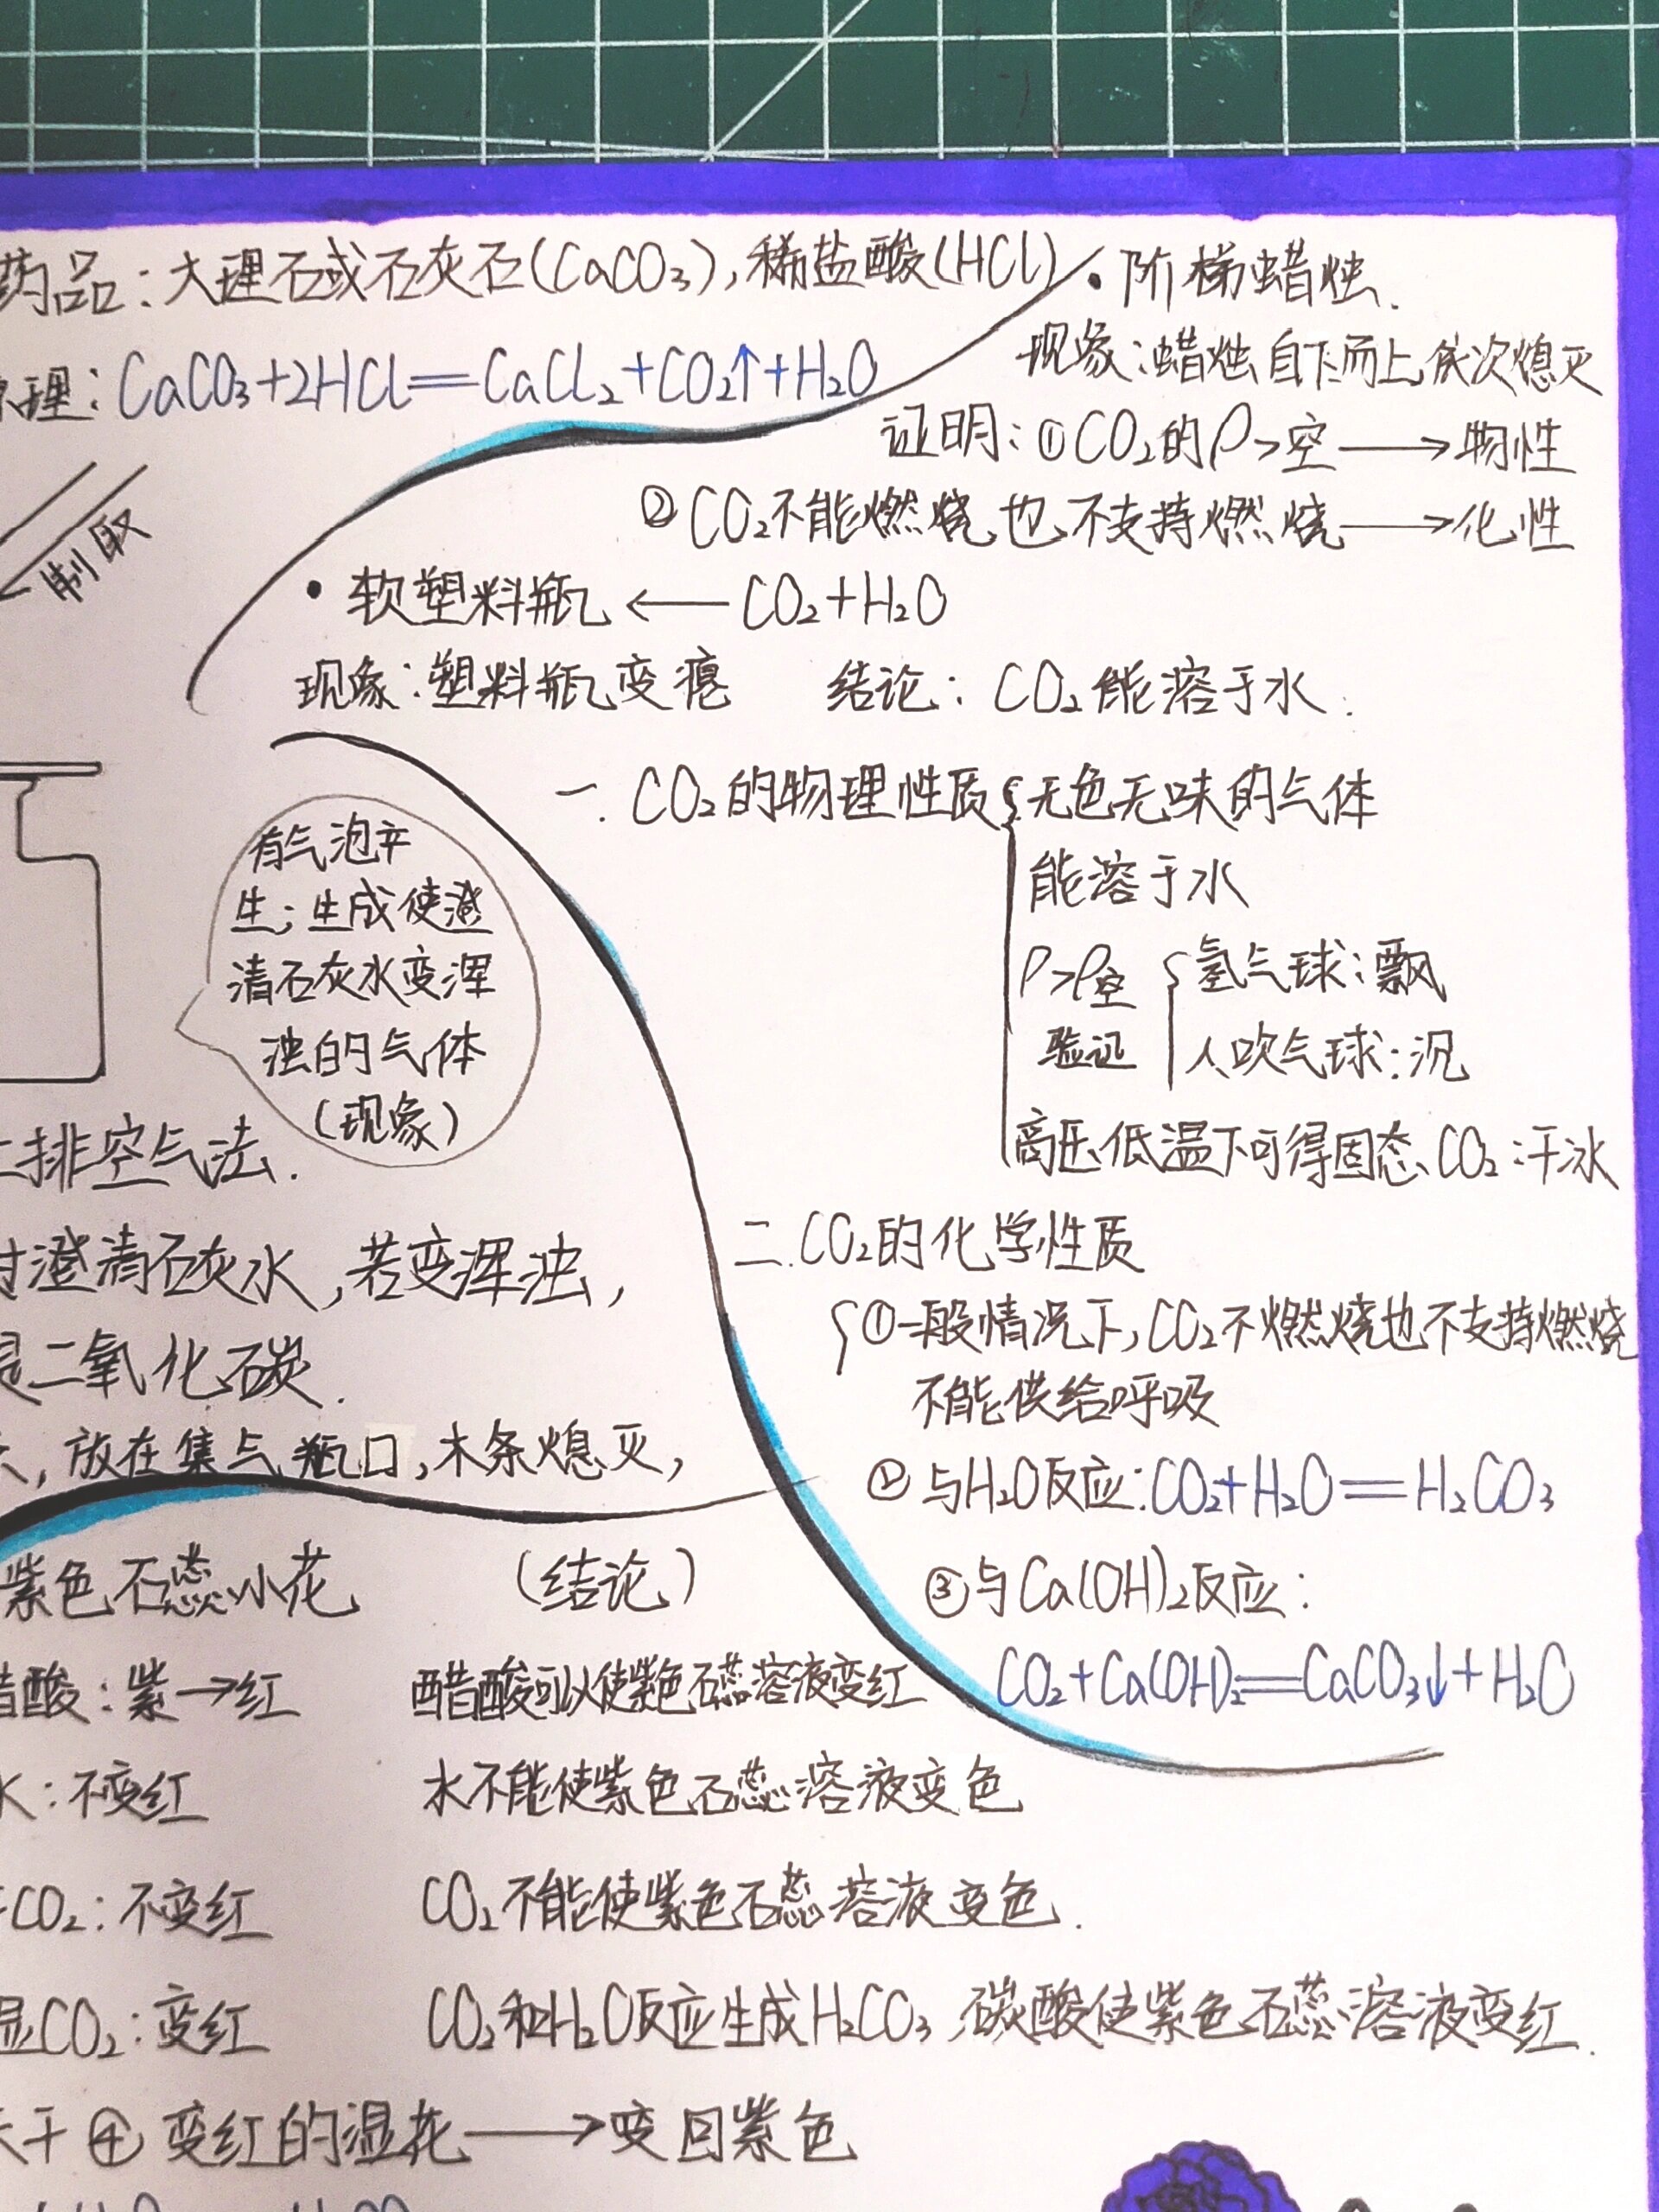 药品：大理石或石灰石(CaCO₃)，稀盐酸(HCl)
理：CaCO₃+2HCl=CaCl₂+CO₂↑+H₂O
制取
·阶梯蜡烛.
现象：蜡烛自下而上，依次熄灭
证明：①CO₂的ρ>空→物性
②CO₂不能燃烧也不支持燃烧→化性
·软塑料瓶←CO₂+H₂O
现象：塑料瓶变瘪 结论：CO₂能溶于水.
一.CO₂的物理性质{无色无味的气体
能溶于水
ρ>ρ空 {氢气球：飘
验证 人吹气球：沉
高压低温下可得固态CO₂：干冰
有气泡产
生；生成使澄
清石灰水变浑
浊的气体
(现象)
排空气法.
澄清石灰水，若变浑浊，
是二氧化碳.
，放在集气瓶口，木条熄灭，
二.CO₂的化学性质
{①一般情况下，CO₂不燃烧也不支持燃烧
不能供给呼吸
②与H₂O反应：CO₂+H₂O=H₂CO₃
③与Ca(OH)₂反应：
CO₂+Ca(OH)₂=CaCO₃↓+H₂O
紫色石蕊小花 (结论)
醋酸：紫→红 醋酸可以使紫色石蕊溶液变红
水：不变红 水不能使紫色石蕊溶液变色
CO₂：不变红 CO₂不能使紫色石蕊溶液变色.
CO₂：变红 CO₂和H₂O反应生成H₂CO₃，碳酸使紫色石蕊溶液变红.
干④变红的湿花→变回紫色